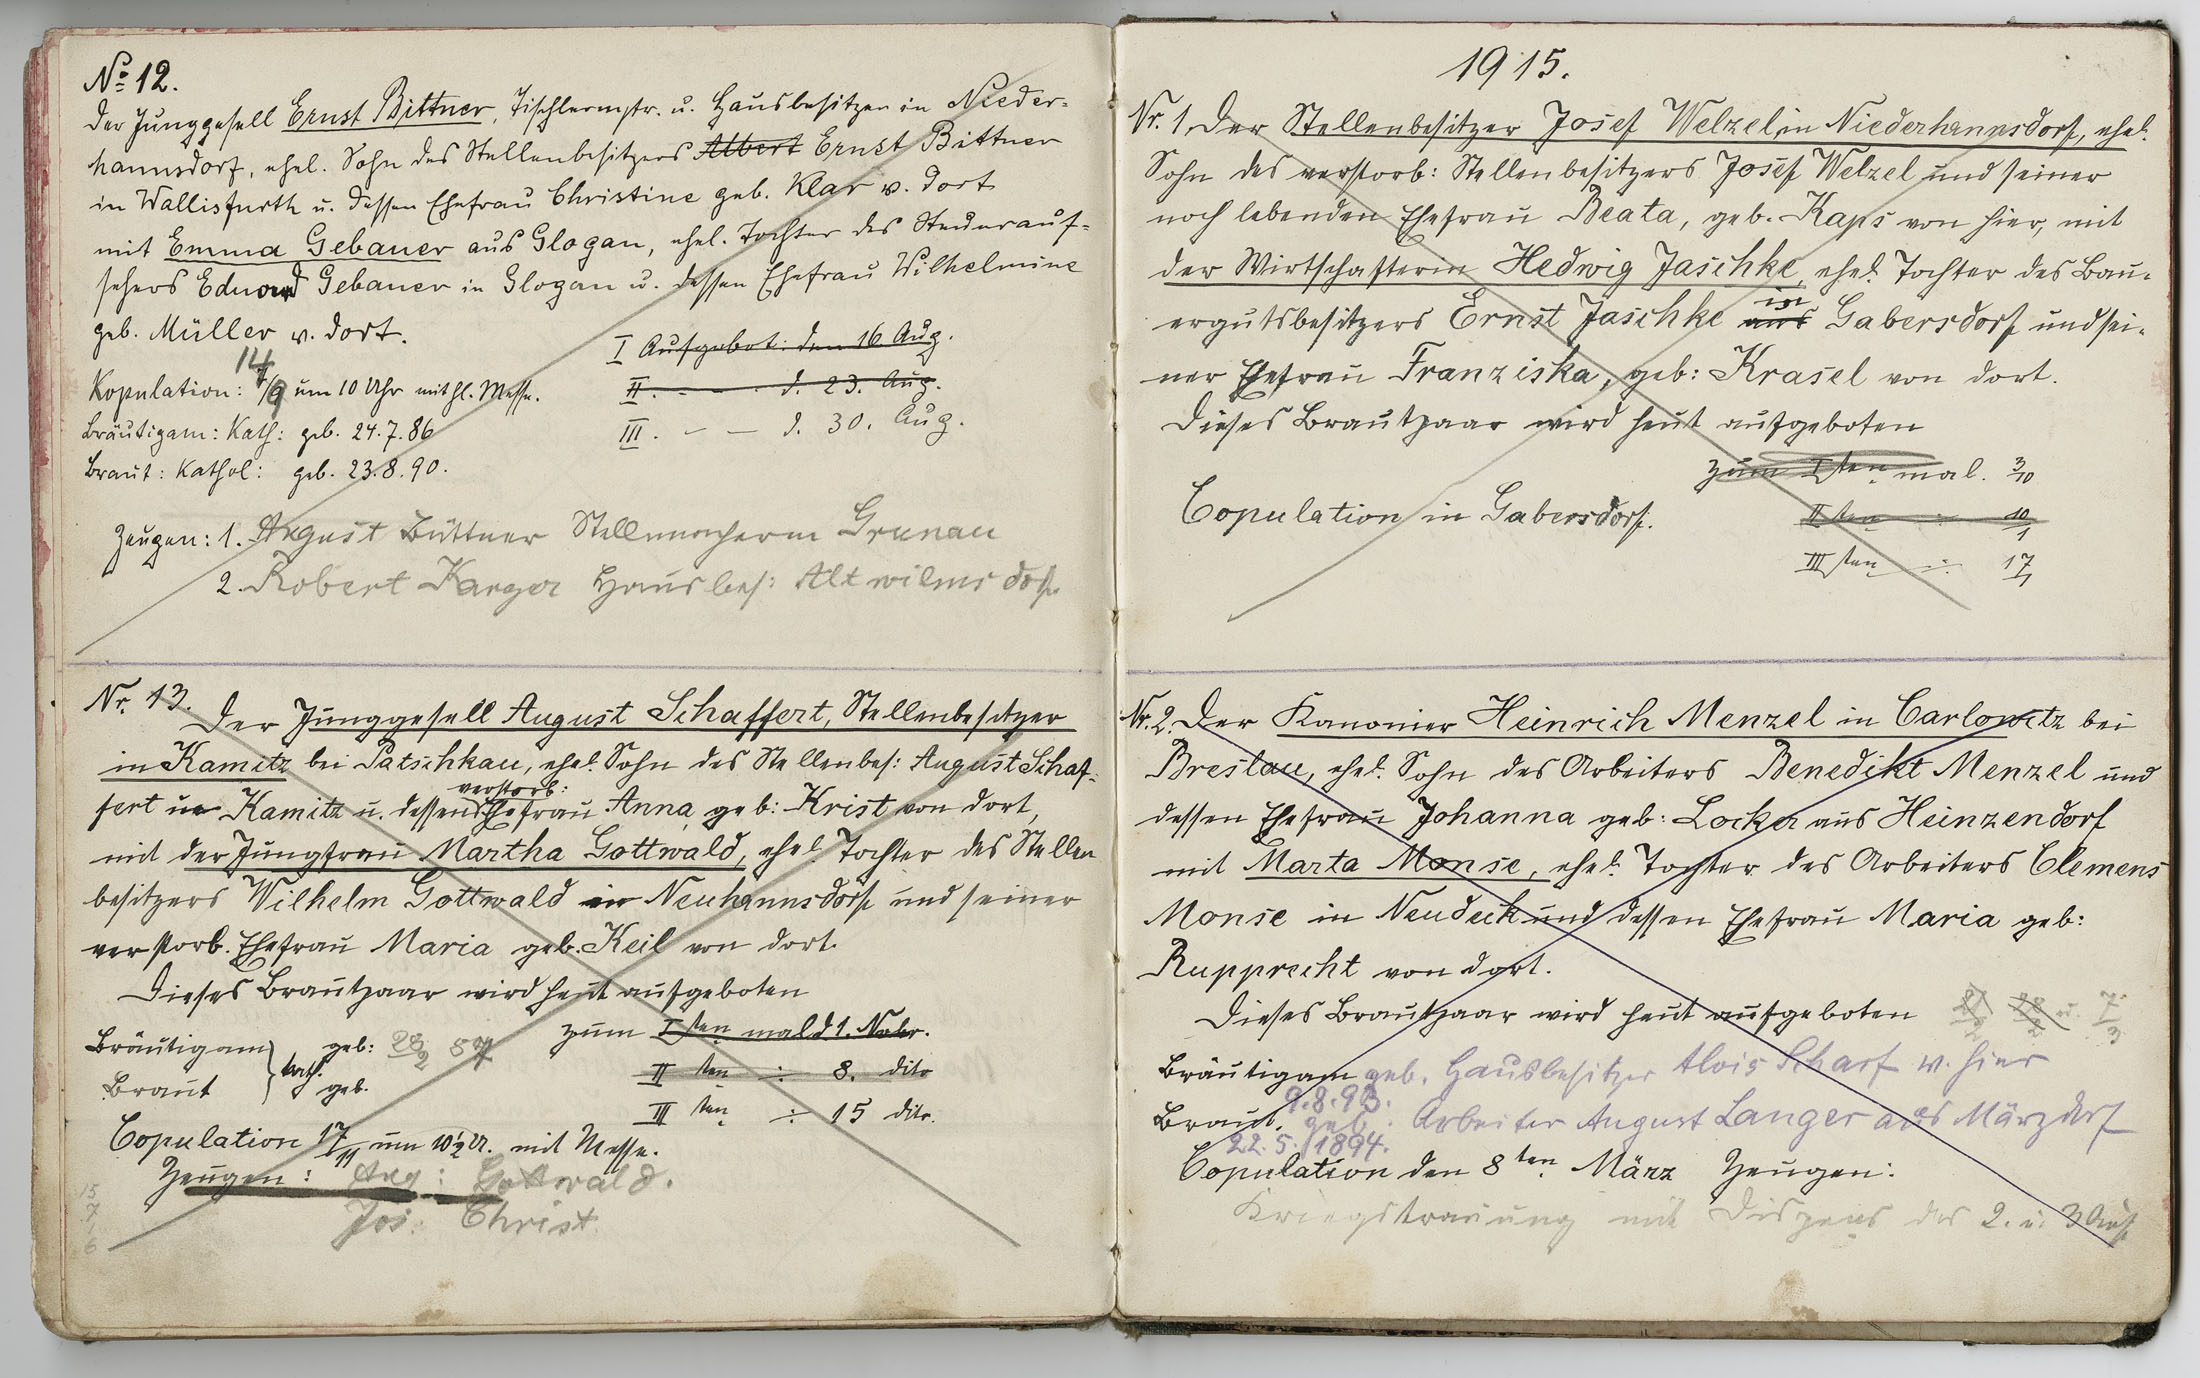 No 12.
Der Junggesell Ernst Bittner, Tischlermstr. u. Hausbesitzer in Nieder-
hannsdorf, ehel. Sohn des Stellenbesitzers Albert Ernst Bittner
in Wallisfurth u. dessen Ehefrau Christine geb. Klar v. dort
mit Emma Gebauer aus Glogau, ehel. Tochter des Steuerauf-
sehers Eduard Gebauer in Glogau u. dessen Ehefrau Wilhelmine
geb. Müller v. dort.
I Aufgebot: den 16 Aug.
Kopulation: 14/9 um 10 Uhr mit hl. Messe.
II. - - - d. 23. Aug.
Bräutigam: Kath: geb. 24.7.86
III. - - d. 30. Aug.
Braut: Kathol: geb. 23.8.90.
Zeugen: 1. August Büttner Grunau
2. Robert Karger Hausbes: Altwilmsdorf
Nr. 13.
Der Junggesell August Schaffert, Stellenbesitzer
in Kamitz bei Patschkau, ehel. Sohn des Stellenbes: August Schaf-
fert in Kamitz u. dessen verstorb: Ehefrau Anna, geb: Krist von dort,
mit der Jungfrau Martha Gottwald, ehel. Tochter des Stellen
besitzers Wilhelm Gottwald in Neuhannsdorf und seiner
verstorb. Ehefrau Maria geb. Keil von dort.
Dieses Brautpaar wird heut aufgeboten
zum I ten mal d 1. Nobr.
Bräutigam geb: 28/2 87
II ten ÷ 8. dito
Braut kath. geb.
III ten ÷ 15 dito.
Copulation 17/11 um 10 1/2 U. mit Messe.
Zeugen: Aug: Gottwald.
Jos: Christ
15
7
1
6
1915.
Nr. 1. Der Stellenbesitzer Josef Welzel, in Niederhannsdorf, ehel.
Sohn des verstorb: Stellenbesitzers Josef Welzel und seiner
noch lebenden Ehefrau Beata, geb. Kaps von hier, mit
der Wirtschafterin Hedwig Jaschke, ehel. Tochter des Bau-
ergutsbesitzers Ernst Jaschke aus in Gabersdorf und sei-
ner Ehefrau Franziska, geb: Krasel von dort.
Dieses Brautpaar wird heut aufgeboten
zum I ten mal. 3/10
Copulation in Gabersdorf.
II ten ÷ 10/1
III ten ÷ 17/1
Nr. 2. Der Kanonier Heinrich Menzel in Carlowitz bei
Breslau, ehel. Sohn des Arbeiters Benedikt Menzel und
dessen Ehefrau Johanna geb: Locker aus Heinzendorf
mit Marta Monse, ehel. Tochter des Arbeiters Clemens
Monse in Neudeck und dessen Ehefrau Maria geb:
Rupprecht von dort.
Dieses Brautpaar wird heut aufgeboten 21/2 28/2 u. 7/3
Bräutigam geb. Hausbesitzer Alois Scharf v. hier
9.8.93.
Braut. geb. Arbeiter August Langer aus Märzdorf
22.5.1894.
Copulation den 8 ten März Zeugen:
Kriegstrauung mit Dispens des 2. u. 3 Auf.